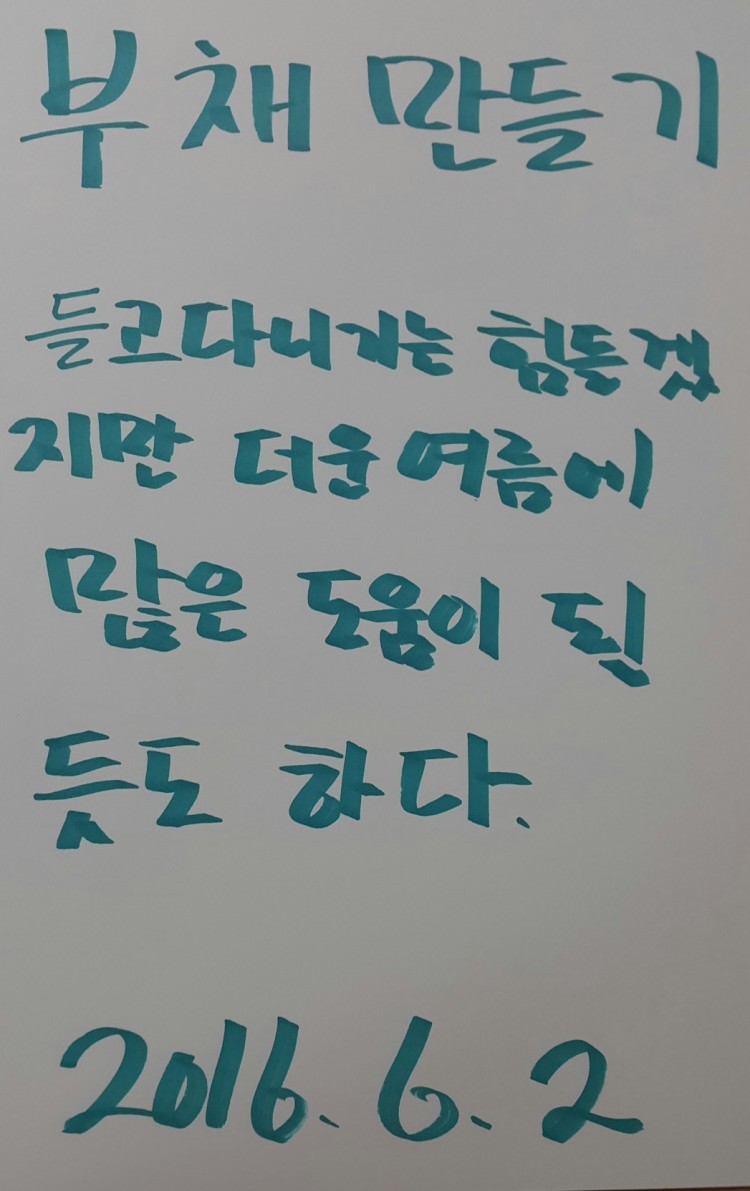 부채 만들기
들고다니기는 힘든겠
지만 더운 여름에
많은 도움이 된
듯도 하다.
2016. 6. 2